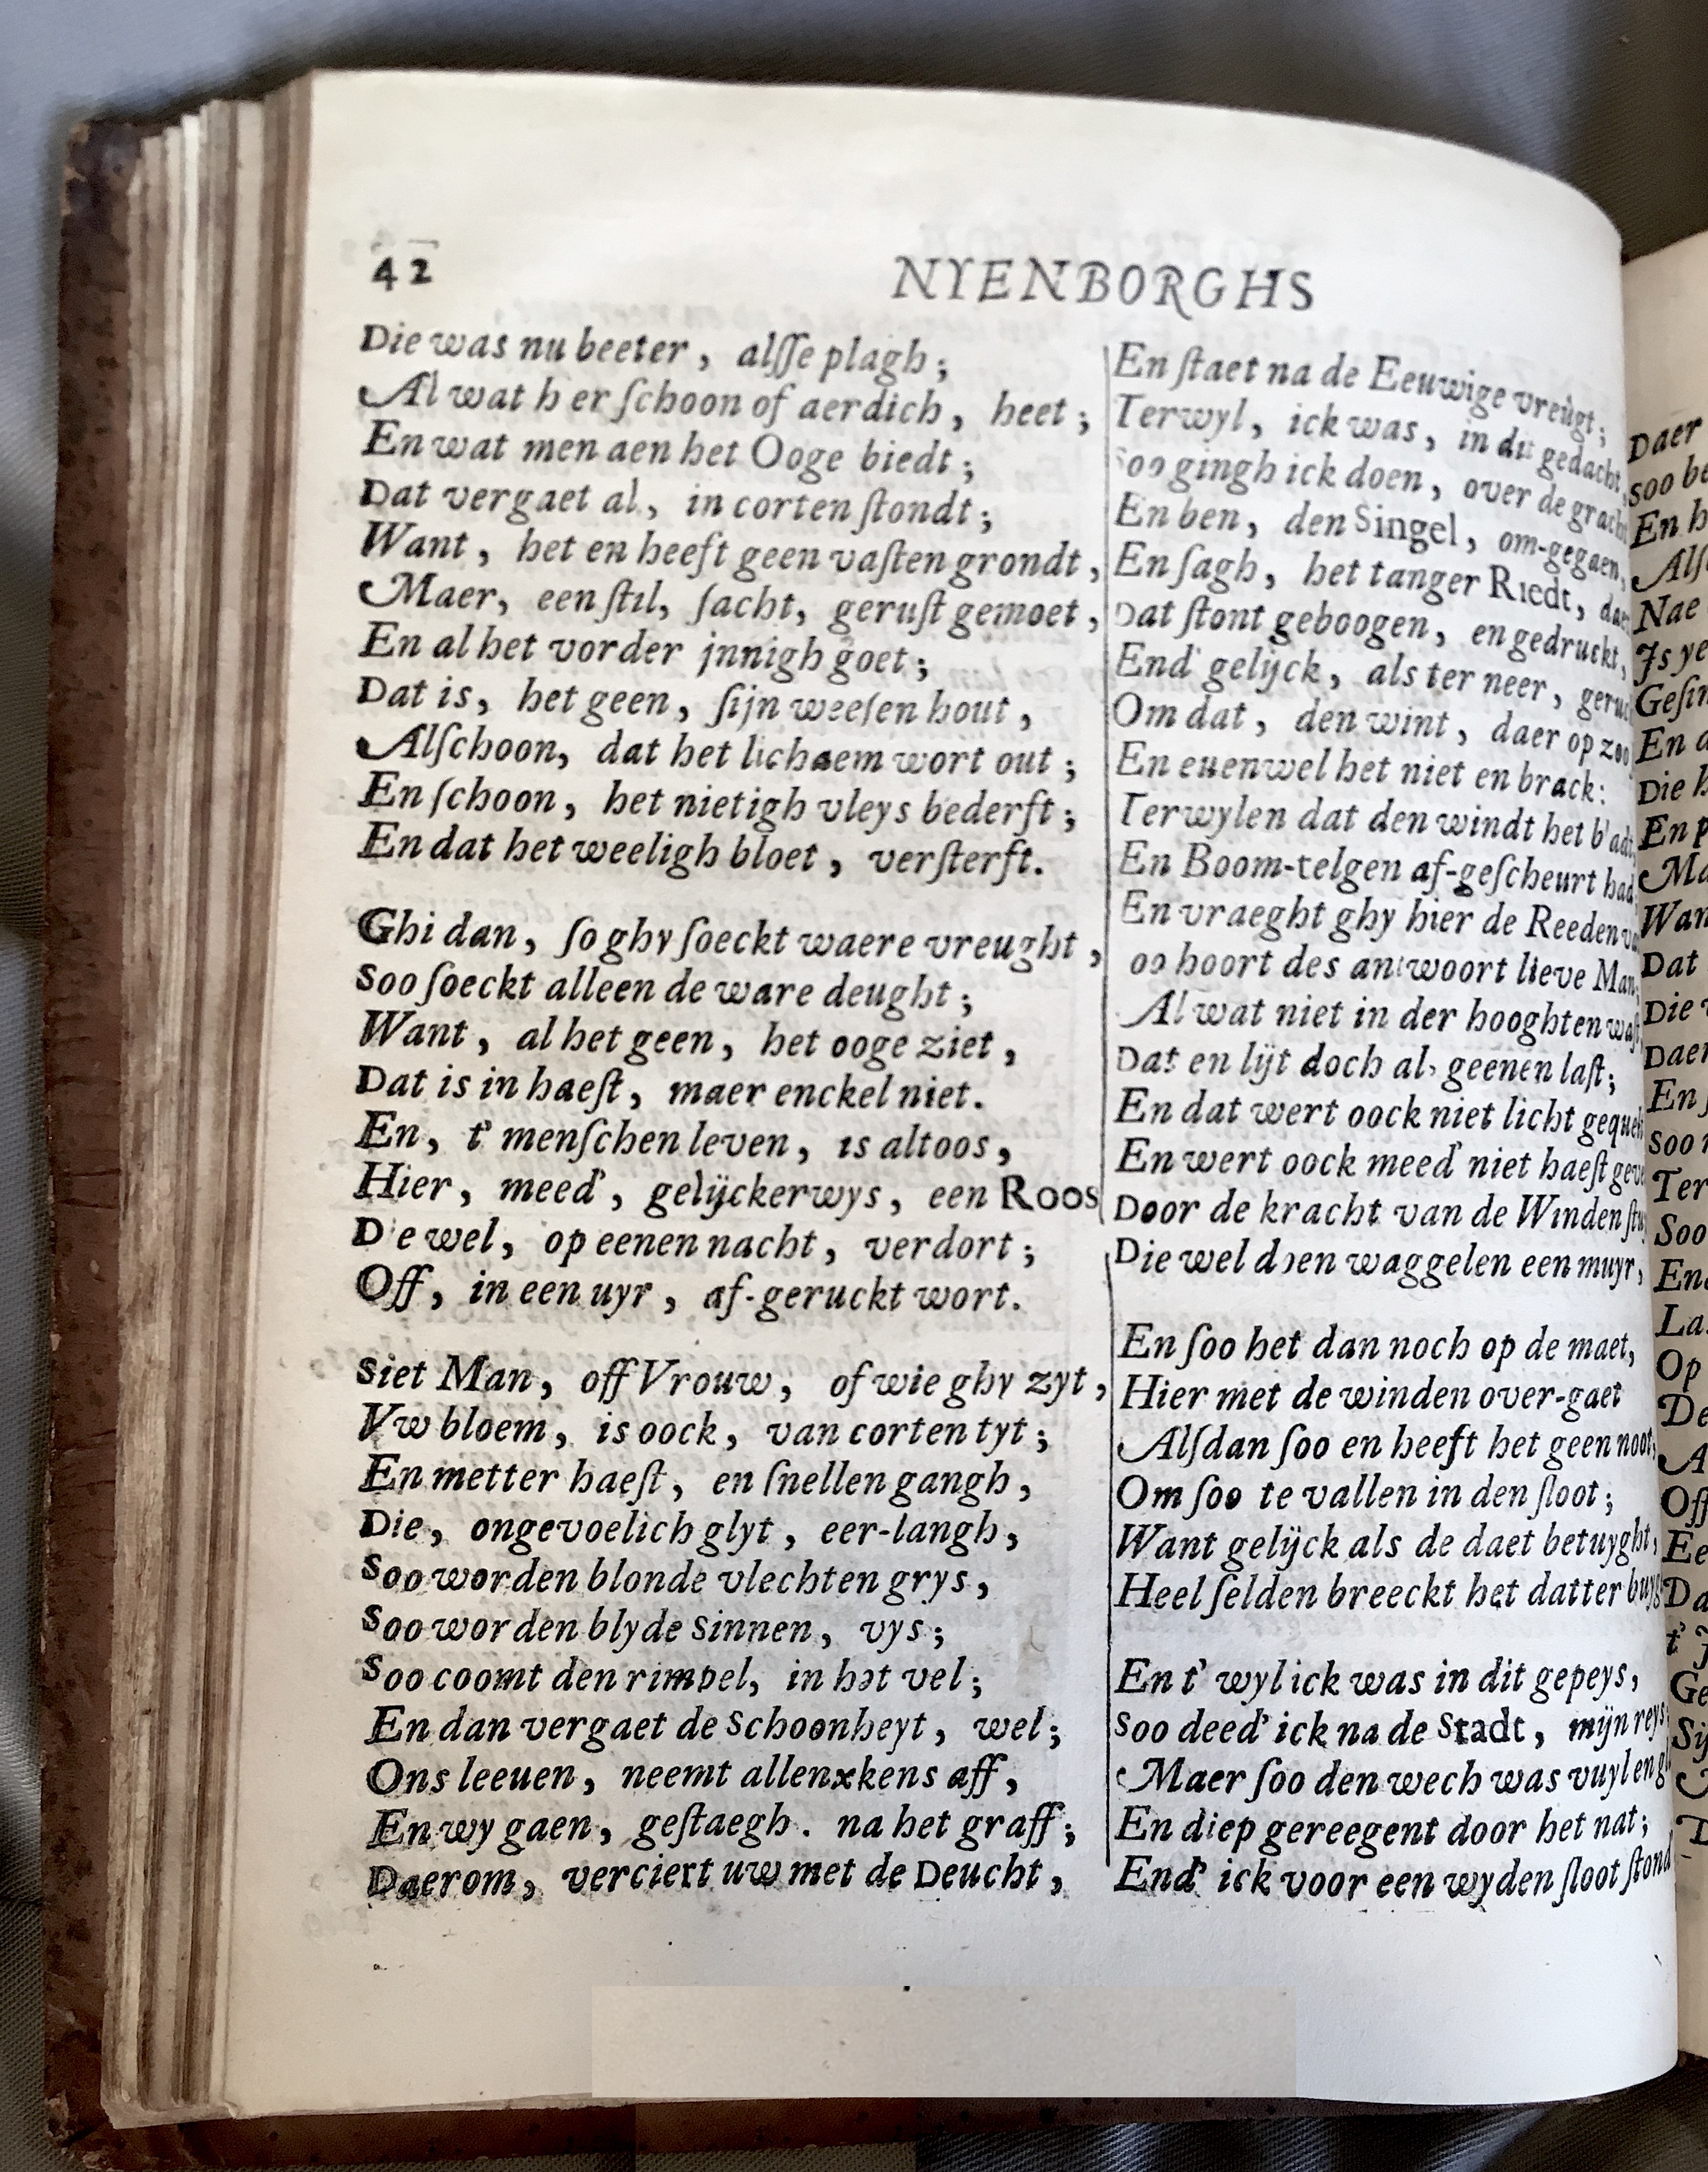 42
NYENBORGHS
Die was nu beeter, alſſe plagh;
Al wat h er ſchoon of aerdich, heet;
En wat men aen het Ooge biedt;
Dat vergaet al, in corten ſtondt;
Want, het en heeft geen vaſten grondt,
Maer, een ſtil, ſacht, geruſt gemoet,
En al het vorder jnnigh goet;
Dat is, het geen, ſijn weeſen hout,
Alſchoon, dat het lichaem wort out;
En ſchoon, het nietigh vleys bederft;
En dat het weeligh bloet, verſterft.
Ghi dan, ſo ghy ſoeckt waere vreught,
Soo ſoeckt alleen de ware deught;
Want, al het geen, het ooge ziet,
Dat is in haeſt, maer enckel niet.
En, t' menſchen leven, is altoos,
Hier, meed', gelijckerwys, een Roos
D'e wel, op eenen nacht, verdort;
Off, in een uyr, af-geruckt wort.
Siet Man, off Vrouw, of wie ghy zyt,
Vw bloem, is oock, van corten tyt;
En metter haeſt, en ſnellen gangh,
Die, ongevoelich glyt, eer-langh,
Soo worden blonde vlechten grys,
Soo worden blyde Sinnen, vys;
Soo coomt den rimpel, in het vel;
En dan vergaet de Schoonheyt, wel;
Ons leeuen, neemt allenxkens aff,
En wy gaen, geſtaegh. na het graff;
Daerom, verciert uw met de Deucht,
En ſtaet na de Eeuwige vreugt;
Terwyl, ick was, in dit gedacht,
Soo gingh ick doen, over de gracht
En ben, den Singel, om-gegaen,
En ſagh, het tanger Riedt, daer
Dat ſtont geboogen, en gedruckt,
End' gelijck, als ter neer,
Om dat, den wint, daer op zoo
En euenwel het niet en brack:
Terwylen dat den windt het b'adt
En Boom-telgen af-geſcheurt had
En vraeght ghy hier de Reeden
oo hoort des antwoort lieve Man;
Al wat niet in der hooghten waſt
Dat en lijt doch al, geenen laſt;
En dat wert oock niet licht
En wert oock meed' niet haeſt
Door de kracht van de Winden
Die wel doen waggelen een muyr,
En ſoo het dan noch op de maet,
Hier met de winden over-gaet
Alſdan ſoo en heeft het geen noot,
Om ſoo te vallen in den ſloot;
Want gelijck als de daet betuyght,
Heel ſelden breeckt het datter
En t' wyl ick was in dit gepeys,
Soo deed' ick na de Stadt, mijn reys
Maer ſoo den wech was vuyl en
En diep gereegent door het nat;
End' ick voor een wyden ſloot ſtond
Daer
soo be
En h
Alſ
Nae
Js ye
Geſin
En a
Die h
En p
Ma
Wan
Dat
Die
Daer
En
Soo
Ter
Soo
End
La
Op
De
A
Off
Ee
Da
Ge